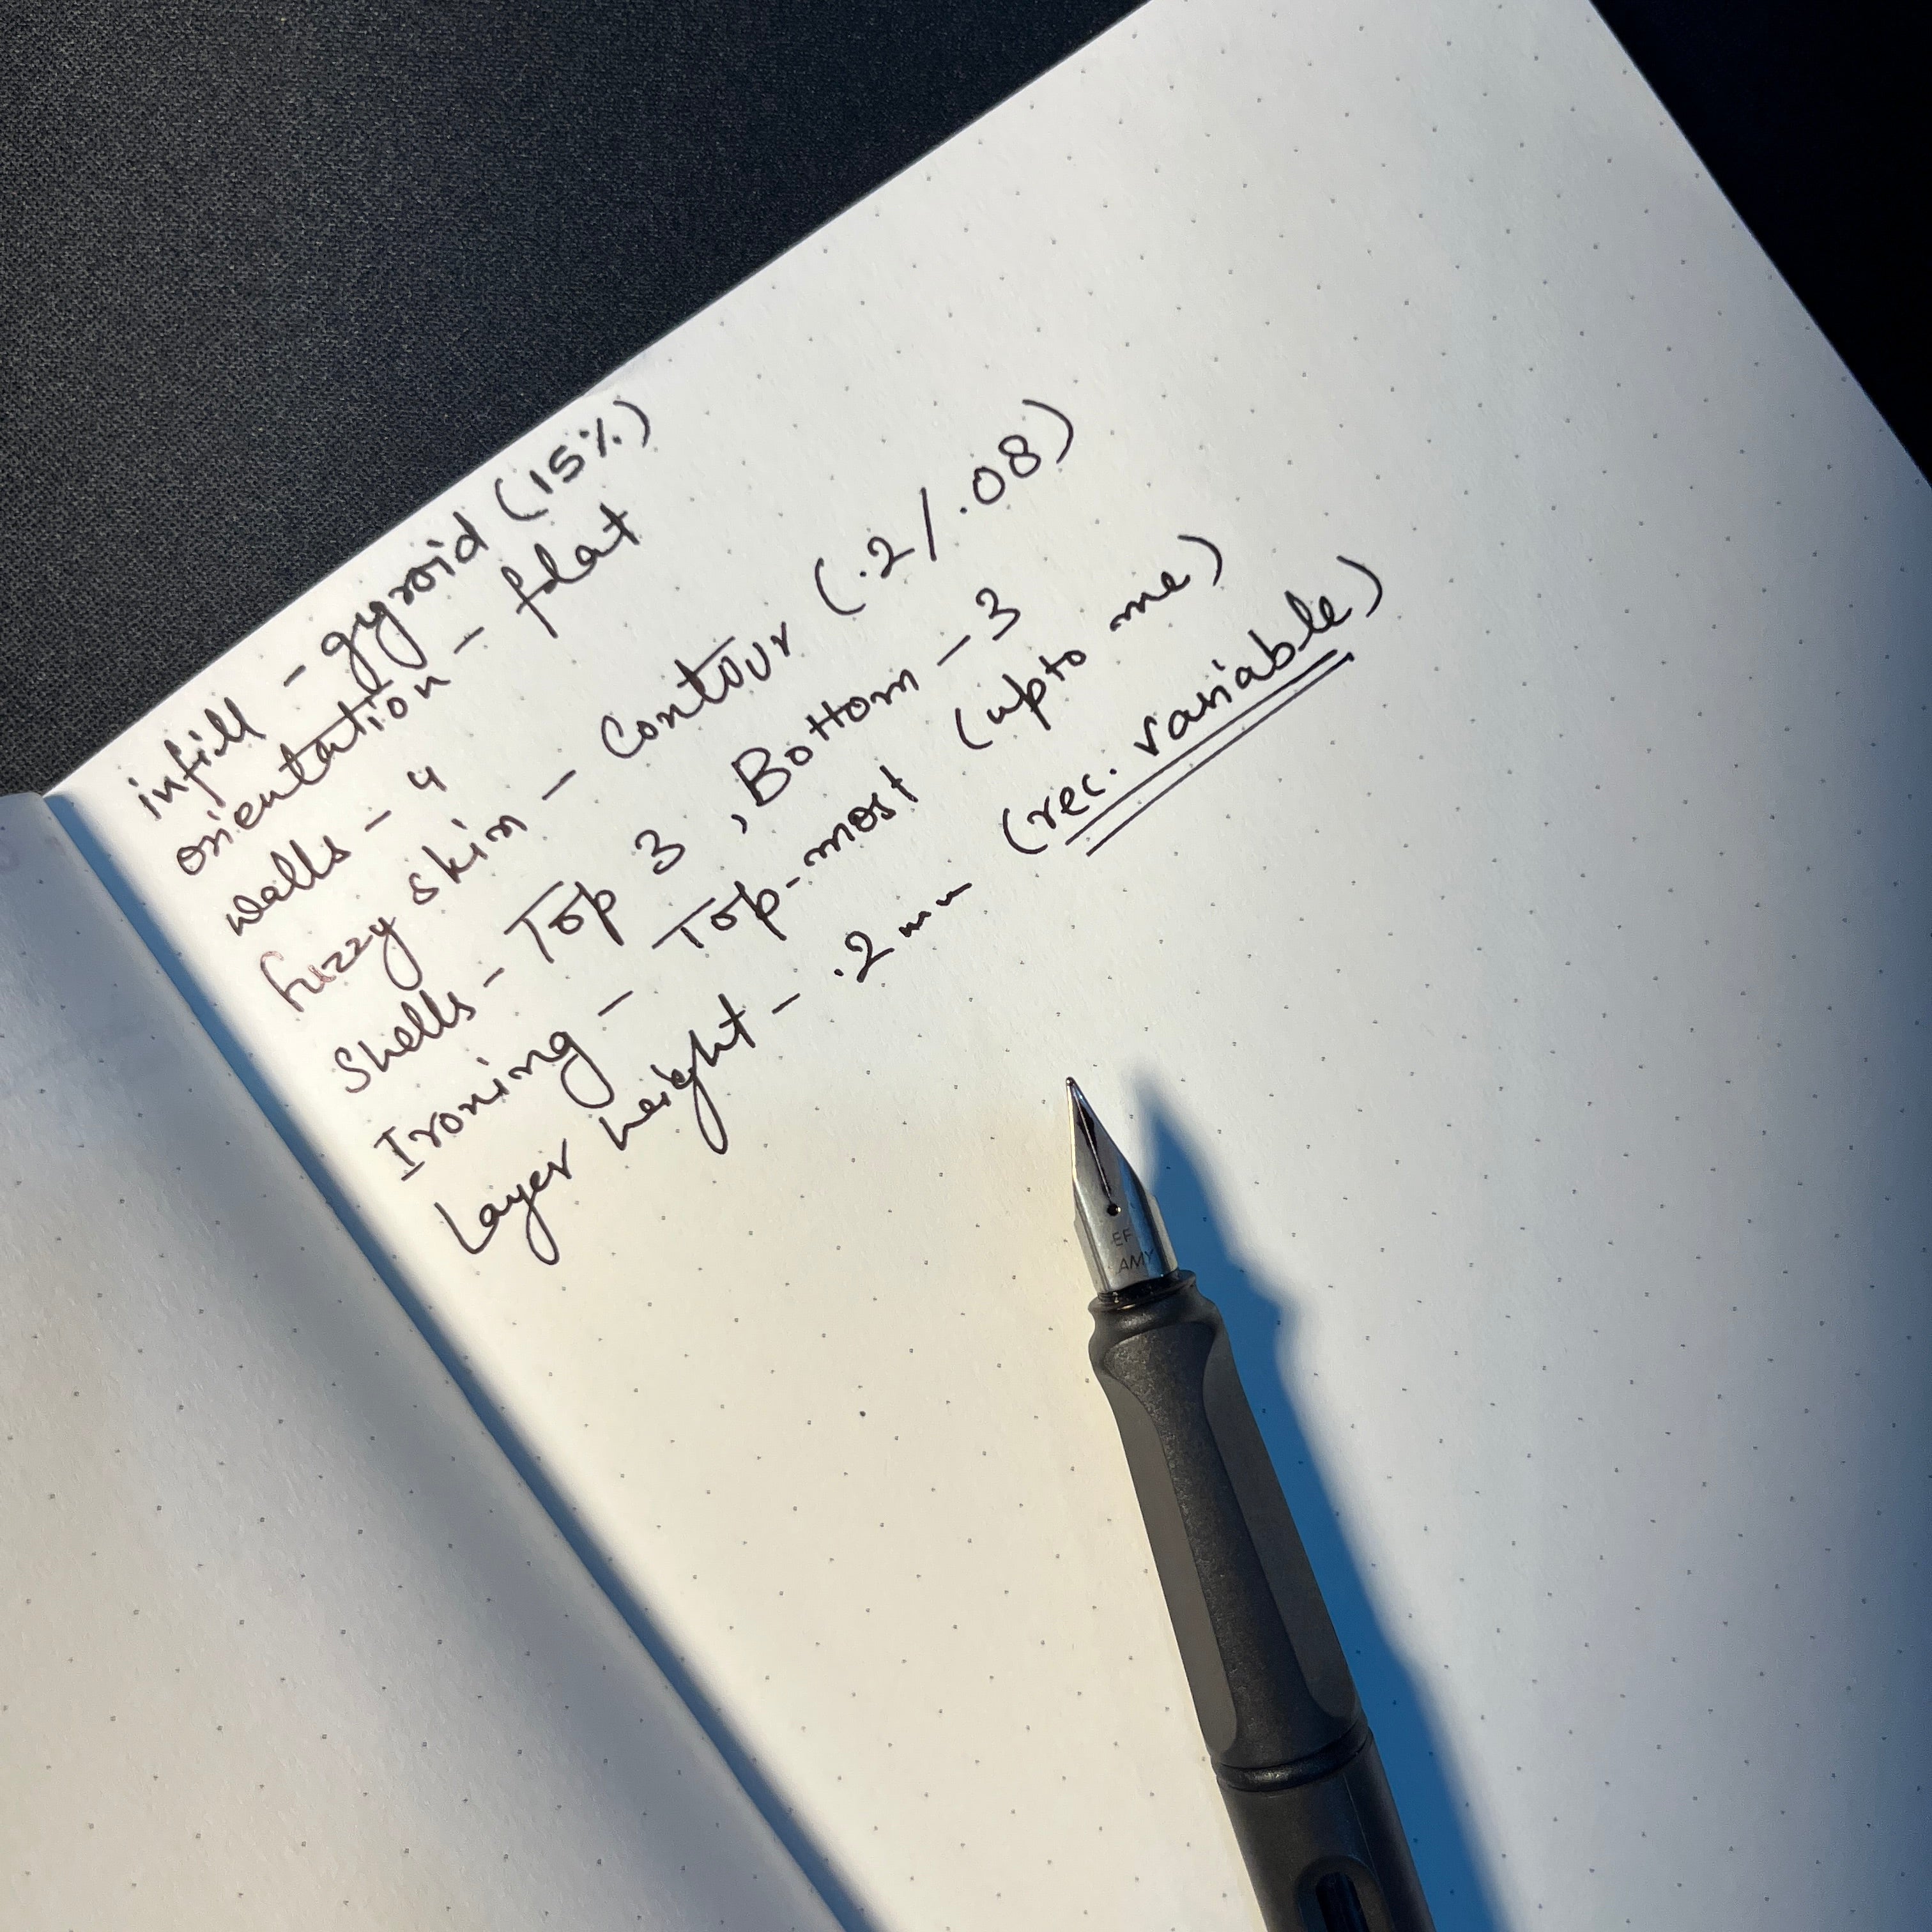 infill - gyroid (15%)
orientation - flat
walls - 4
fuzzy skin - Contour (.2/.08)
Shells - Top 3, Bottom - 3
Ironing - Top-most (upto me)
Layer height - .2mm (rec. variable)
EF
AMY